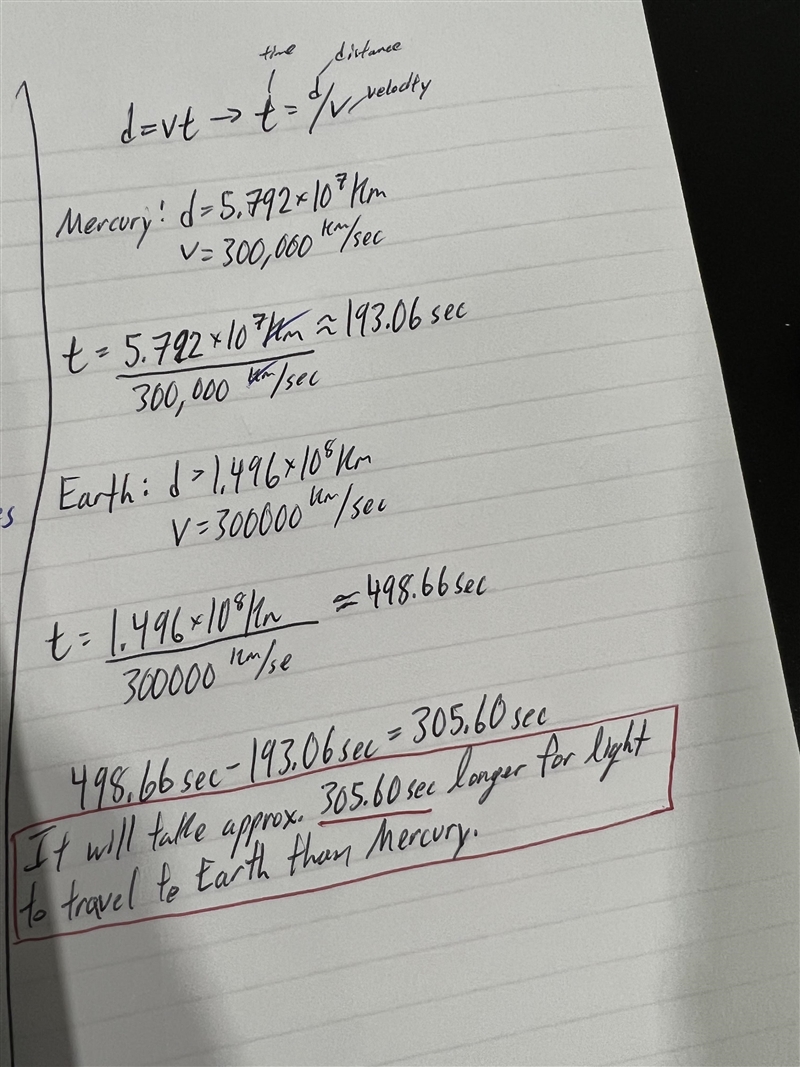 time distance
d=vt → t = d/v velocity
Mercury: d=5.792×10⁷ Km
v=300,000 Km/sec
t = 5.792×10⁷ Km ≈ 193.06 sec
300,000 Km/sec
Earth: d=1.496×10⁸ Km
v=300000 Km/sec
t = 1.496×10⁸ Km ≈ 498.66 sec
300000 Km/se
498.66 sec - 193.06 sec = 305.60 sec
It will take approx. 305.60 sec longer for light
to travel to Earth than Mercury.
es